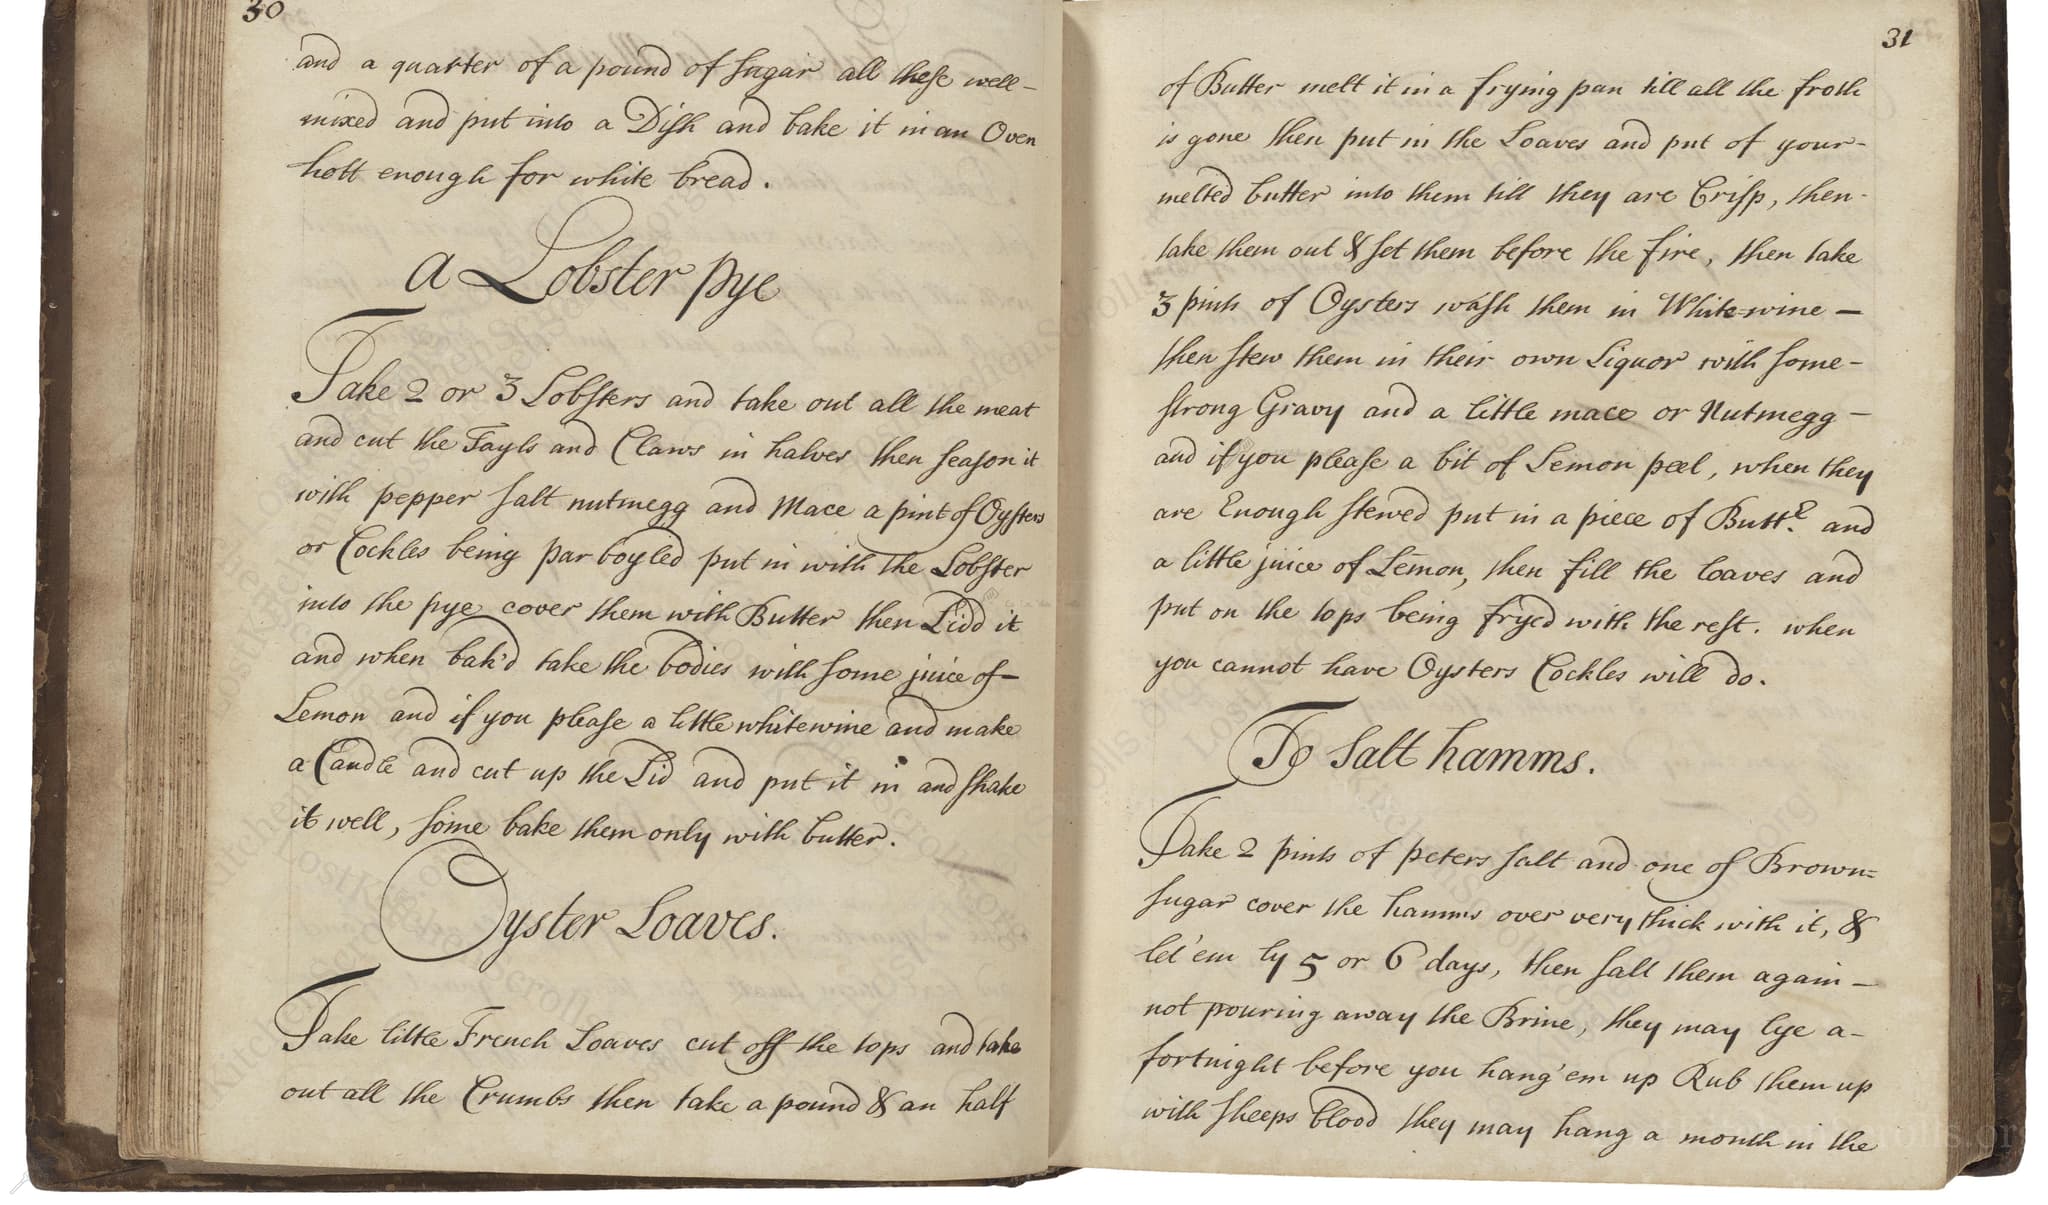 30
and a quarter of a pound of sugar all these well-
mixed and put into a Dish and bake it in an Oven
hott enough for white bread.
a Lobster pye
Take 2 or 3 Lobsters and take out all the meat
and cut the Tayls and Claws in halves then season it
with pepper salt nutmegg and Mace a pint of Oysters
or Cockles being par boyled put in with the Lobster
into the pye cover them with Butter then Lidd it
and when bak'd take the bodies with some juice of-
Lemon and if you please a little whitewine and make
a Caudle and cut up the Lid and put it in and shake
it well, some bake them only with butter.
Oyster Loaves.
Take little French Loaves cut off the tops and take
out all the Crumbs then take a pound & an half
31
of Butter melt it in a frying pan till all the froth
is gone then put in the Loaves and put of your-
melted butter into them till they are Crisp, then-
take them out & set them before the fire, then take
3 pints of Oysters wash them in White=wine —
then stew them in their own Liquor with some-
strong Gravy and a little mace or Nutmegg —
and if you please a bit of Lemon peel, when they
are Enough stewed put in a piece of Buttr. and
a little juice of Lemon, then fill the loaves and
put on the tops being fryed with the rest. when
you cannot have Oysters Cockles will do.
To Salt hamms.
Take 2 pints of peters salt and one of Brown=
sugar cover the hamms over very thick with it, &
let'em ly 5 or 6 days, then salt them again —
not pouring away the Brine, they may lye a-
fortnight before you hang'em up Rub them up
with sheeps blood they may hang a month in the